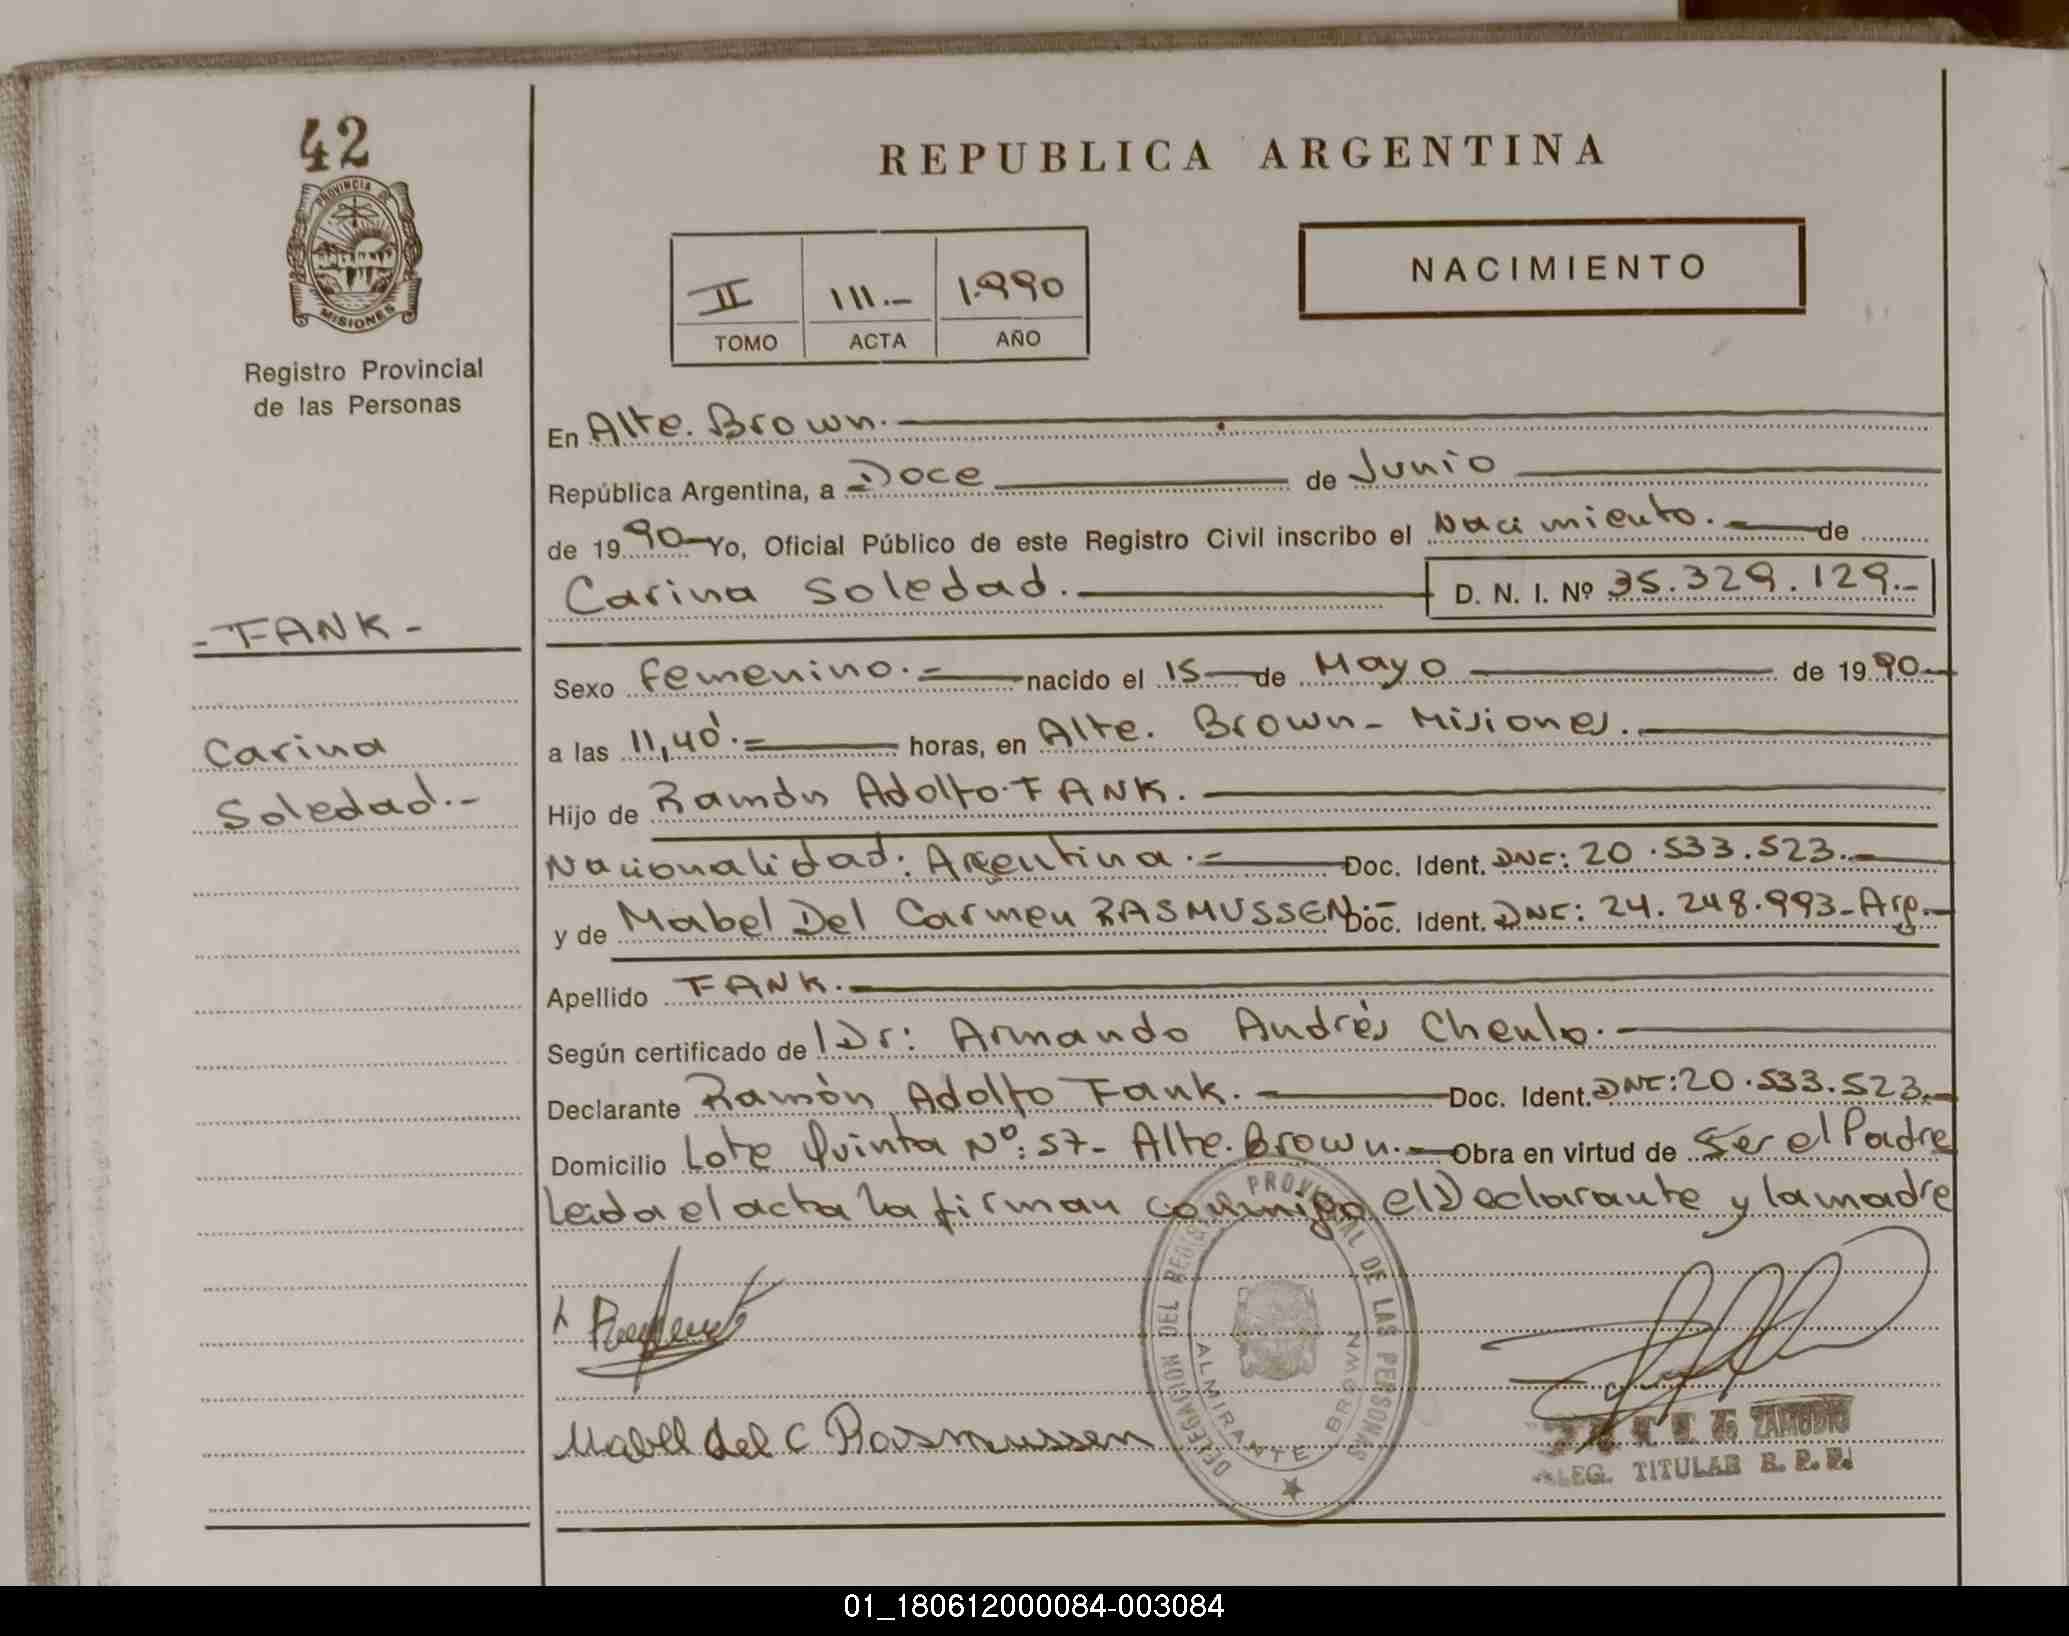 42
PROVINCIA DE
MISIONES
Registro Provincial
de las Personas
- FANK -
Carina
Soledad.-
REPUBLICA ARGENTINA
II 111.- 1.990
TOMO ACTA AÑO
NACIMIENTO
En Alte. Brown.
República Argentina, a Doce de Junio
de 1990 Yo, Oficial Público de este Registro Civil inscribo el Nacimiento. de
Carina Soledad. D. N. I. Nº 35.329.129.-
Sexo femenino.= nacido el 15 de Mayo de 1990
a las 11,40'.= horas, en Alte. Brown- Misiones.
Hijo de Ramón Adolfo. FANK.
Nacionalidad: Argentina.= Doc. Ident. DNI: 20.533.523.-
y de Mabel Del Carmen RASMUSSEN.= Doc. Ident. DNI: 24.248.993-Arg.-
Apellido FANK.
Según certificado de Dr: Armando Andrés Chenlo.
Declarante Ramón Adolfo Fank. Doc. Ident. DNI: 20.533.523.-
Domicilio Lote Quinta Nº: 57- Alte. Brown. Obra en virtud de Ser el Padre
Leida el acta la firman conmigo el Declarante y la madre
Mabel del C Rasmussen
DELEGACION DEL REGISTRO PROVINCIAL DE LAS PERSONAS
ALMIRANTE BROWN
ZAMUDIO
DELEG. TITULAR R. P. P.
01_180612000084-003084